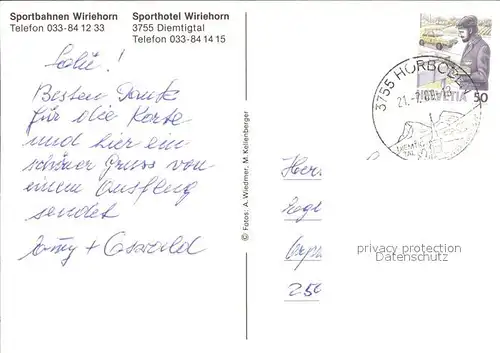 Sportbahnen Wiriehorn
Telefon 033-84 12 33
Sporthotel Wiriehorn
3755 Diemtigtal
Telefon 033-84 14 15
Salü!
Besten Dank
für die Karte
und hier ein
schöner Gruss von
einem Ausflug
sendet
+ Oswald
© Fotos: A. Wiedmer, M. Kellenberger
3755 HORBODEN
HELVETIA 50
DIEMTIG
TAL
Herr
250
privacy protection
Datenschutz